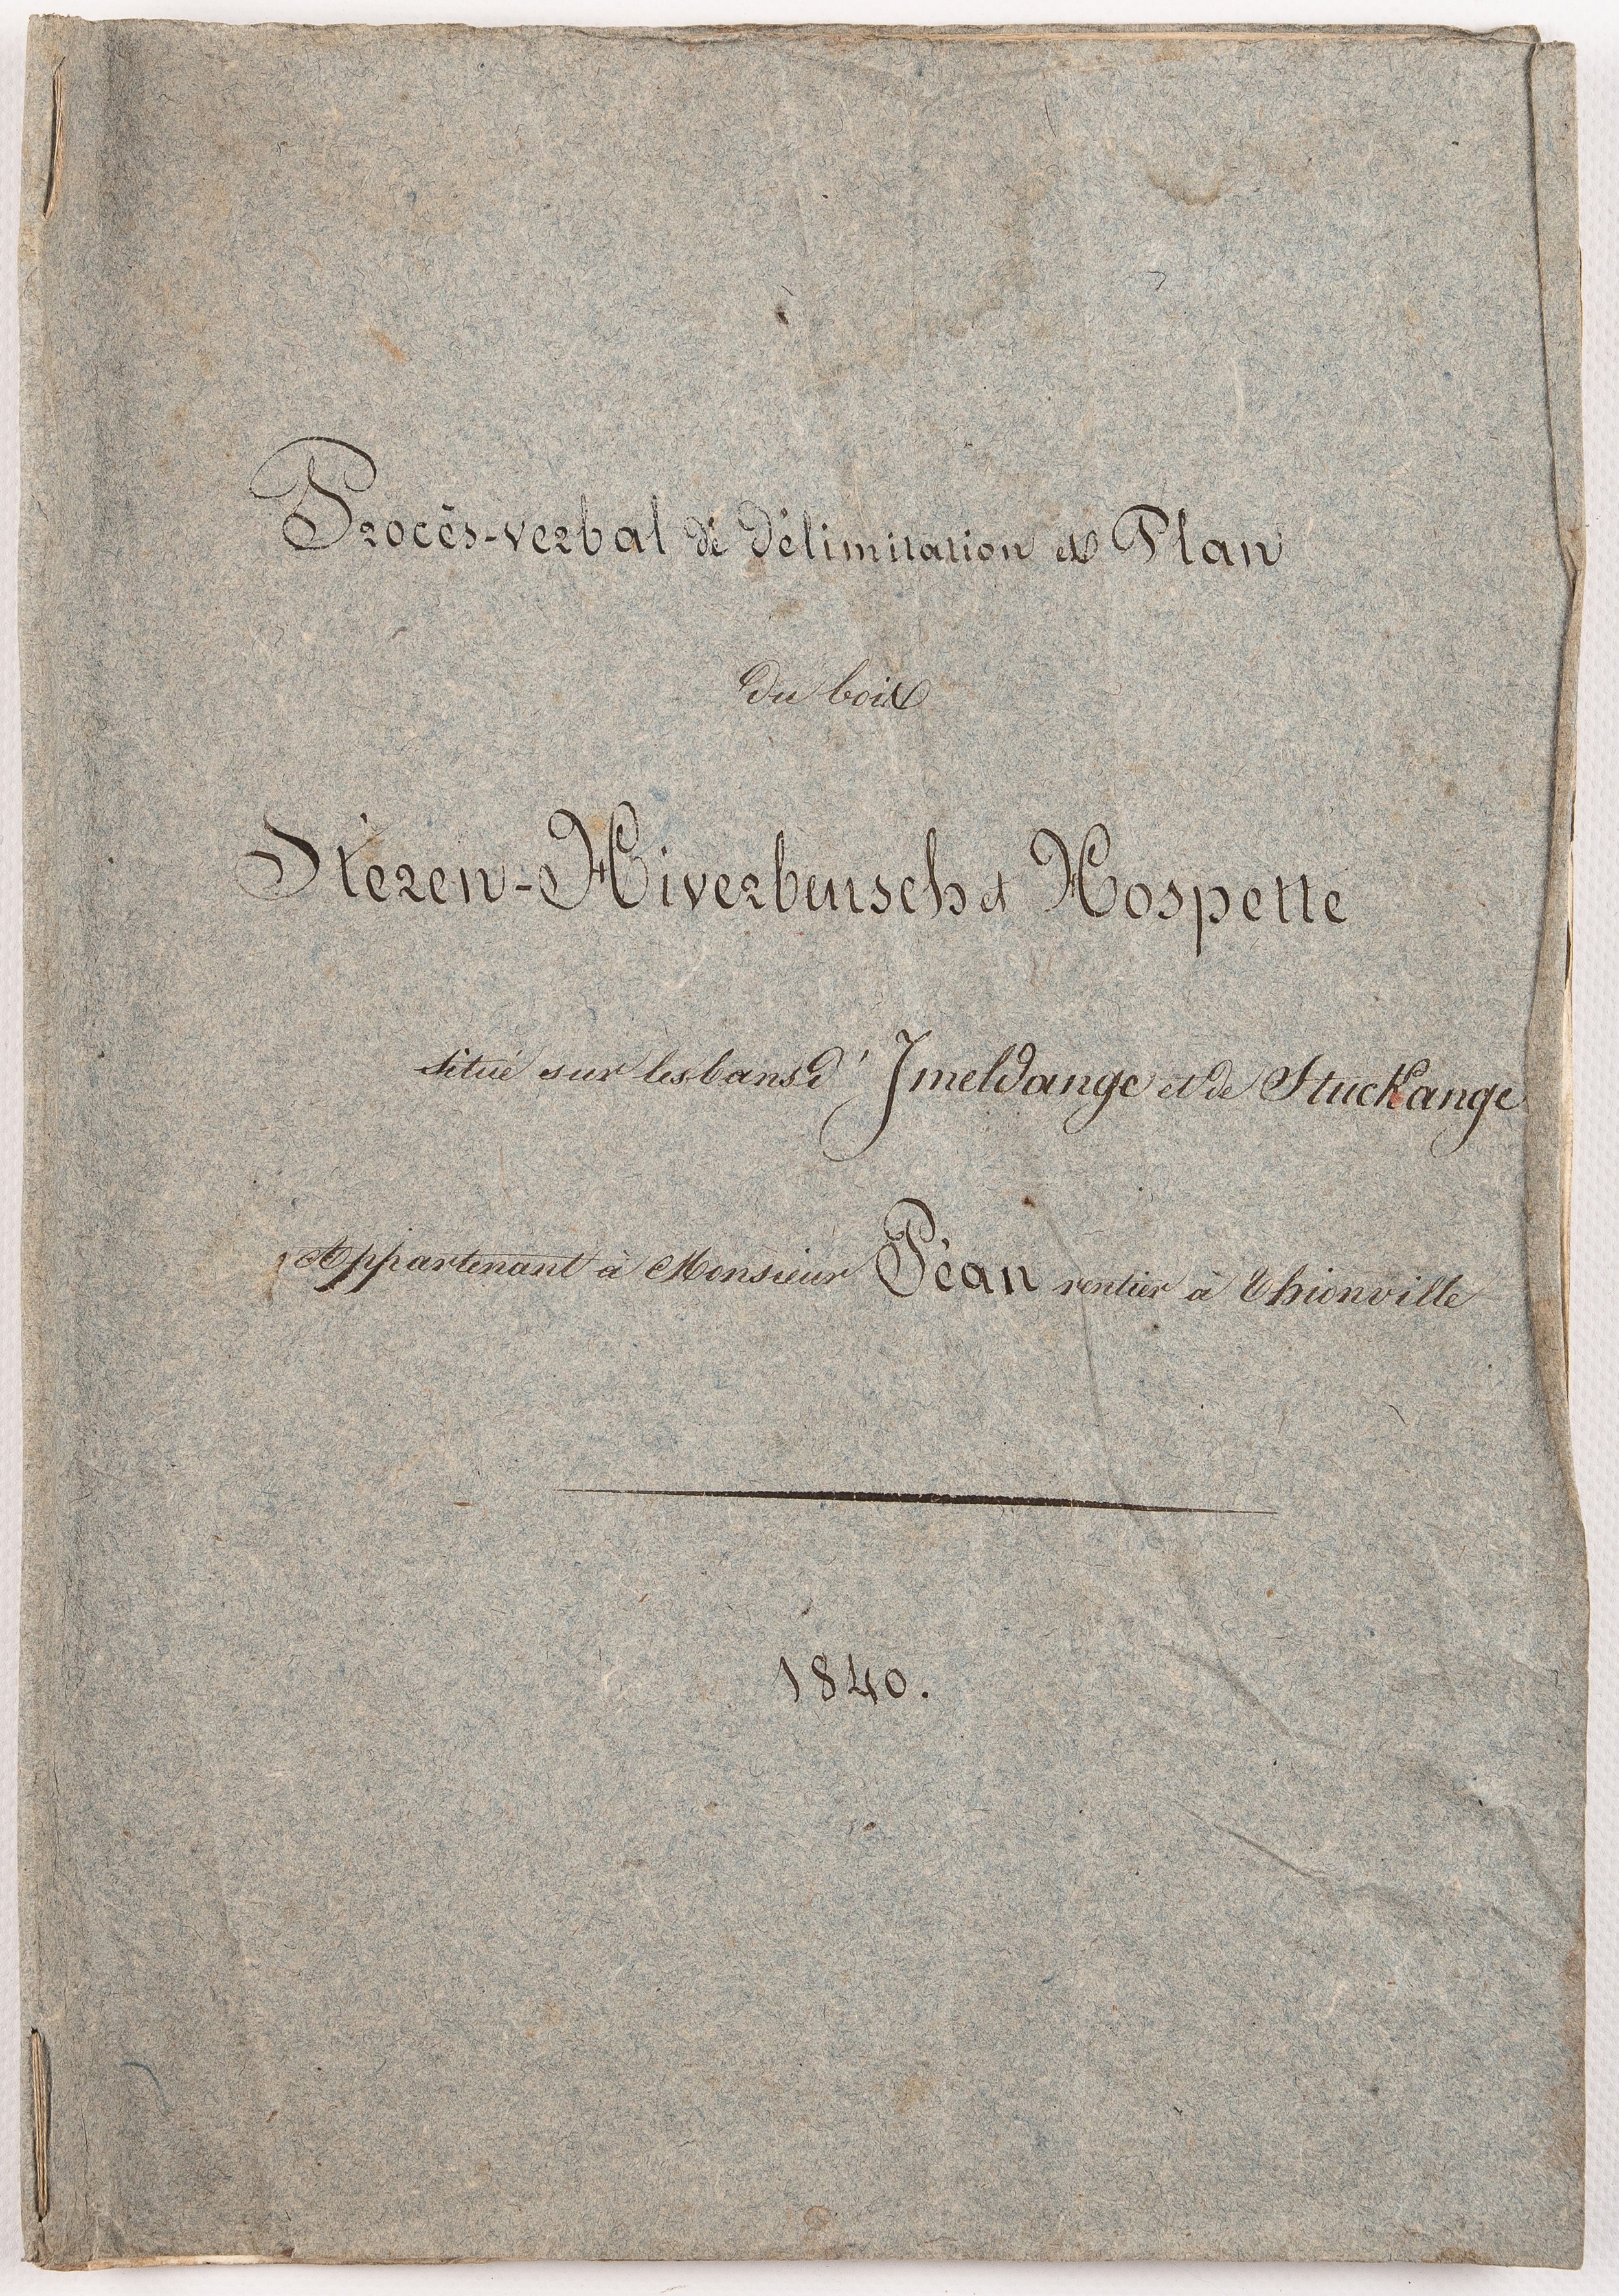 Procès-verbal de délimitation et Plan
du bois
Steren-Hiverbusch et Hospette
situé sur les bans d'Imeldange et de Stuckange
Appartenant à Monsieur Péan rentier à Thionville
1840.